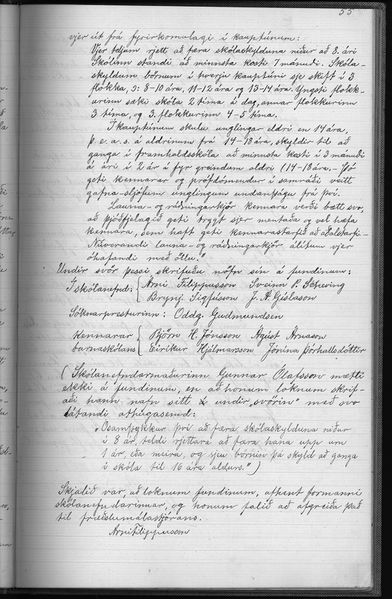 55
vjer út frá fyrirkomulagi í kauptúnum:
Vjer teljum rjett að færa skólaskylduna niður að 8. ári
Skólinn standi að minnsta kosti 7 mánuði. Skóla-
skyldum börnum í hverju kauptúni sje skift í 3
flokka, 3: 8-10 ára, 11-12 ára og 13-14 ára. Yngsti flokk-
urinn sæki skóla 2 tíma á dag, annar flokkurinn
3 tíma, og 3. flokkurinn 4-5 tíma.
Í kauptúnum skulu unglingar eldri en 14 ára,
þ. e. a. s. á aldrinum frá 14-18 ára, skyldir til að
ganga í framhaldsskóla að minnsta kosti í 3 mánuði
á ári í 2 ár á fyr greindum aldri (14-18 ára.- Þó
geti kennarar og prófdómendur í samráði veitt
gáfna-sljófum unglingum undanþágu frá því.
Launa- og ráðningarkjör kennara verði bætt svo,
að þjóðfjelagið geti trygt sjer mentaða og vel hæfa
kennara, sem haft geti kennarastarfið að
Núverandi launa- og ráðningarkjör álítum vjer
óhafandi með öllu."
Undir svör þessi skrifuðu nöfn sín á fundinum:
Í skólanefnd: Árni Filippusson Sveinn P. Scheving
Brynj. Sigfússon J. A. Gíslason
Sóknarpresturinn: Oddg. Guðmundsen
Kennarar Björn H. Jónsson Ágúst Árnason
barnaskólans Eiríkur Hjálmarsson Jónína Þórhallsdóttir
(Skólanefndarmaðurinn Gunnar Ólafsson mætti
ekki á fundinum, en að honum loknum skrif-
aði hann nafn sitt undir „svörin" með svo
látandi athugasemd:
„Ósamþykkur því að færa skólaskylduna niður
í 8 ár, teldi rjettara að færa hana upp um
1 ár, eða meira, og sjeu börnin þá skyld að ganga
í skóla til 16 ára aldurs.")
Skjalið var, að loknum fundinum, afhent formanni
skólanefndarinnar, og honum falið að afgreiða það
til fræðslumálastjórans.
Árni Filippusson